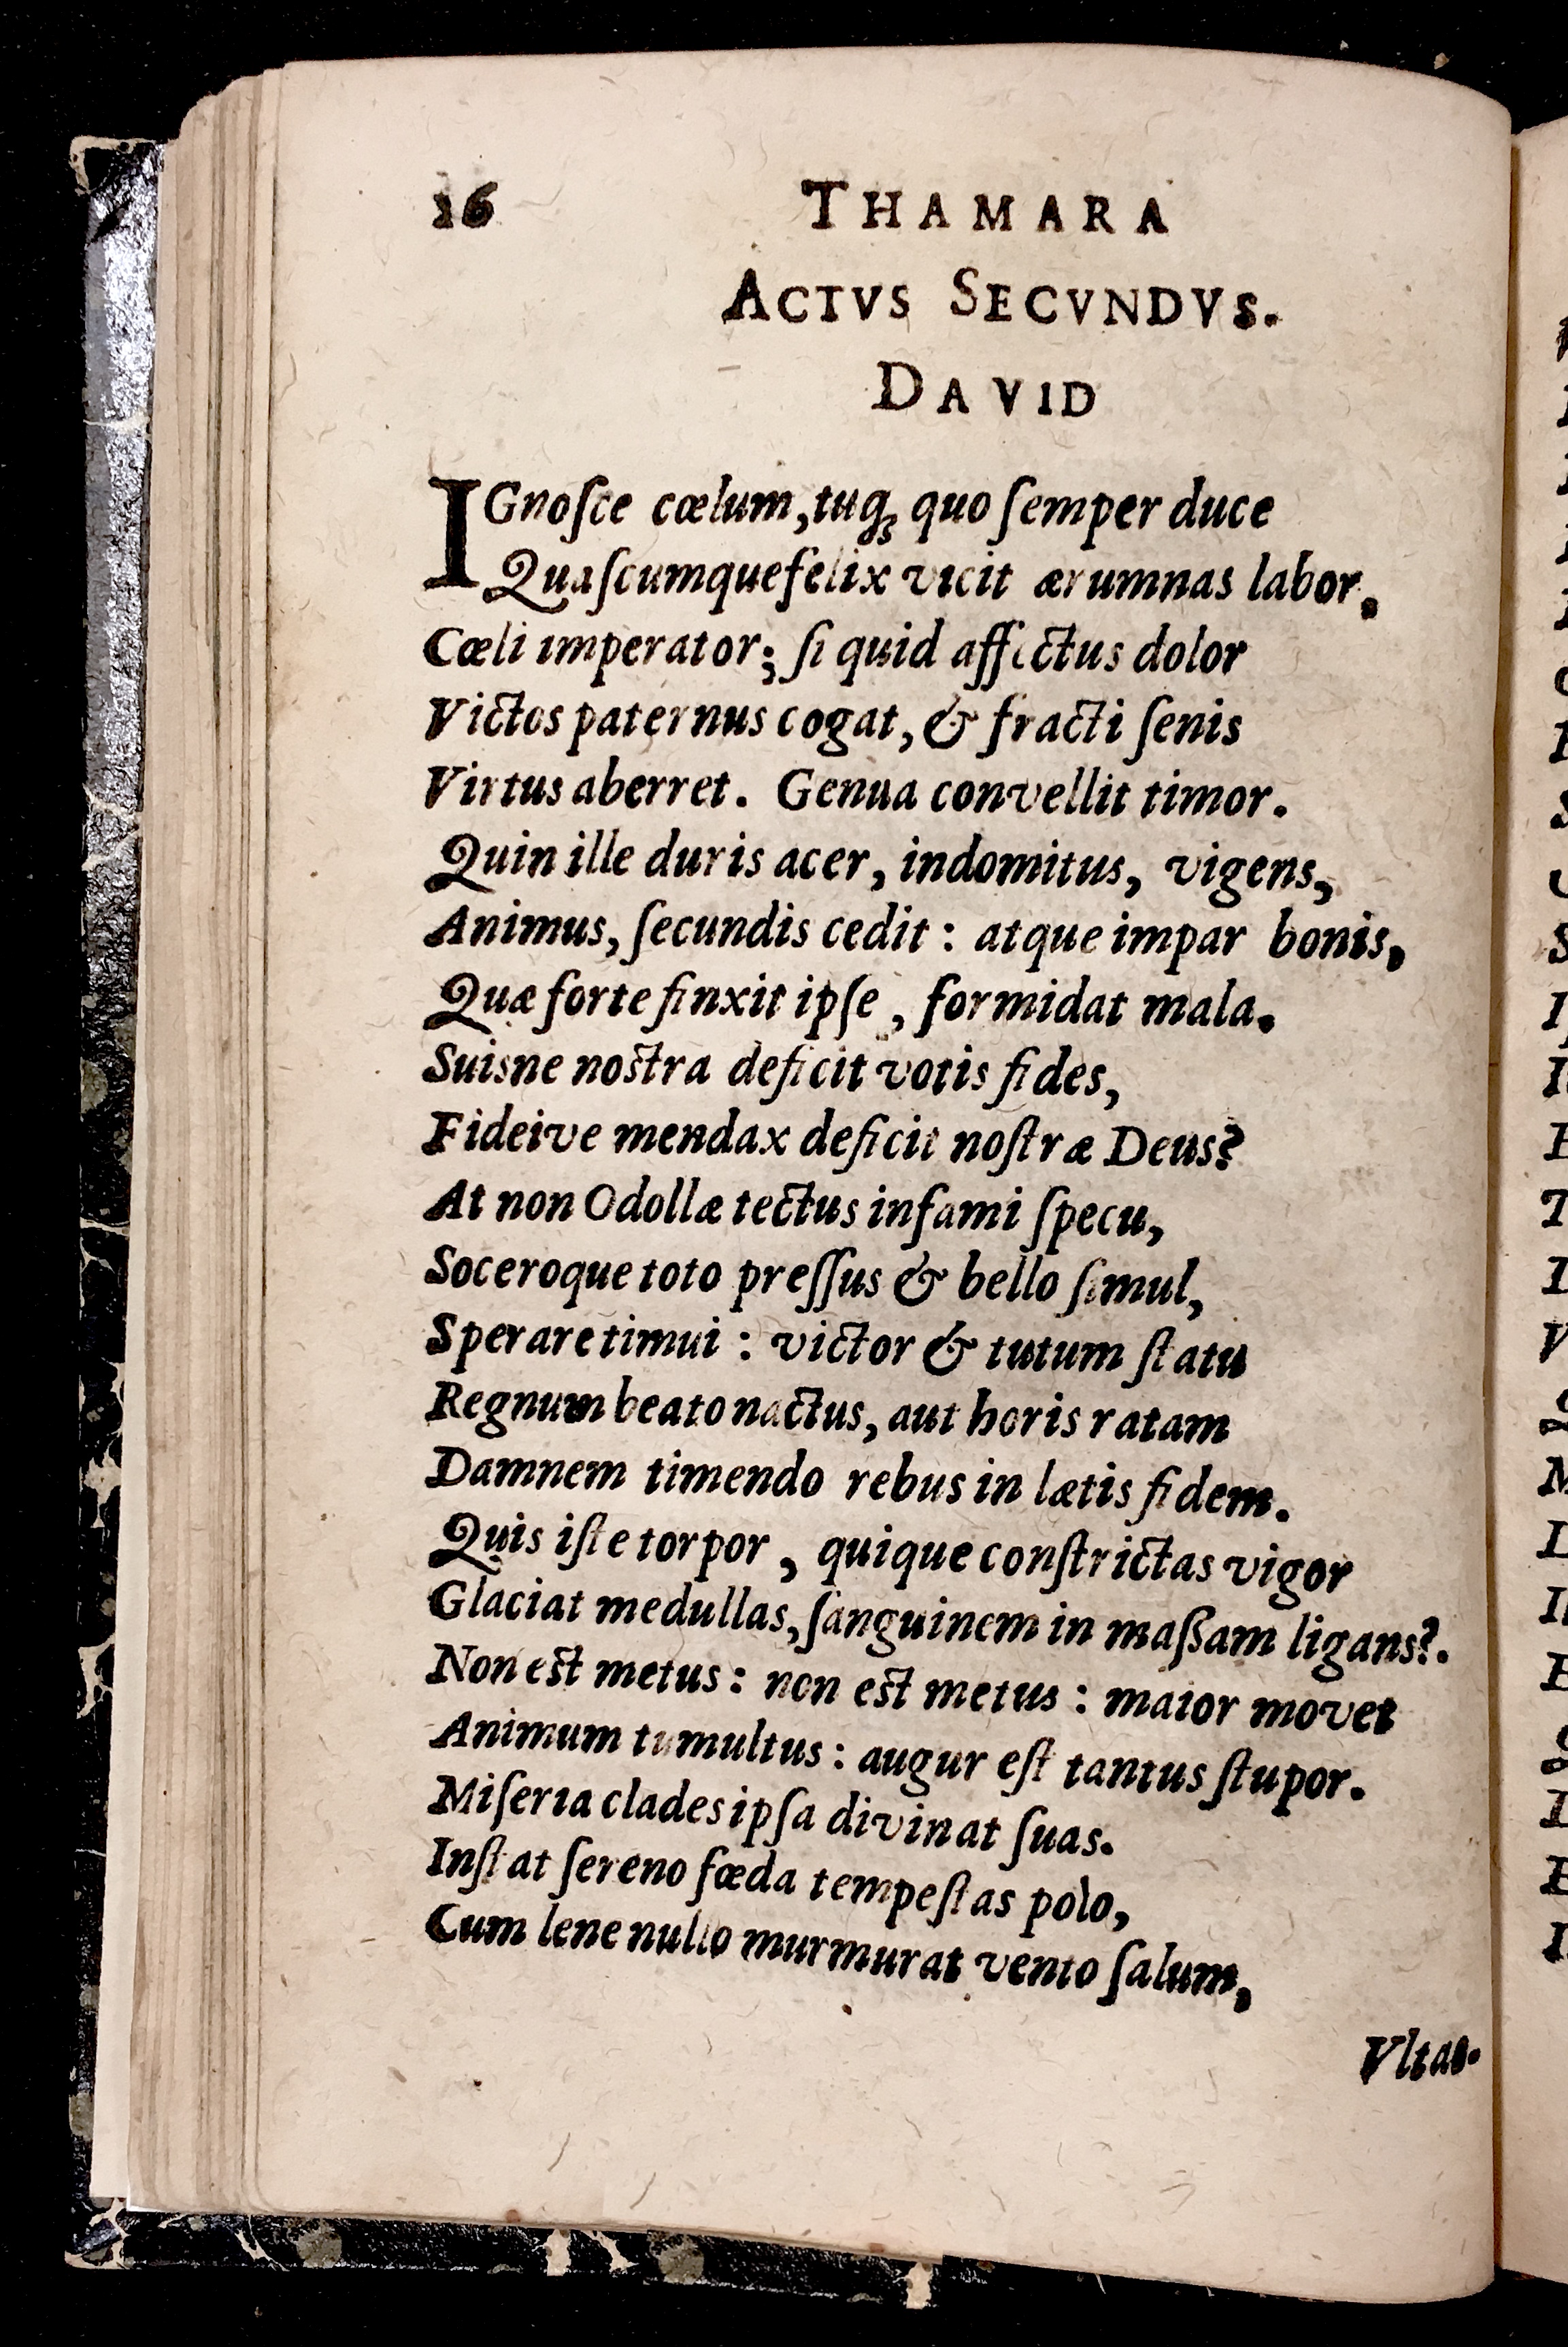 16 THAMARA
ACTVS SECVNDVS.
DAVID
IGnoſce cœlum, tuq; quo ſemper duce
Quaſcumque felix vicit ærumnas labor.
Cœli imperator; ſi quid affictus dolor
Victos paternus cogat, & fracti ſenis
Virtus aberret. Genua convellit timor.
Quin ille duris acer, indomitus, vigens,
Animus, ſecundis cedit: atque impar bonis,
Quæ forte finxit ipſe, formidat mala.
Suisne noſtra deficit votis fides,
Fideive mendax deficit noſtræ Deus?
At non Odollæ tectus infami ſpecu,
Soceroque toto preſſus & bello ſimul,
Sperare timui: victor & tutum ſtatu
Regnum beato nactus, aut horis ratam
Damnem timendo rebus in lætis fidem.
Quis iſte torpor, quique conſtrictas vigor
Glaciat medullas, ſanguinem in maſſam ligans?.
Non eſt metus: non eſt metus: maior movet
Animum tumultus: augur eſt tantus ſtupor.
Miſeria clades ipſa divinat ſuas.
Inſtat ſereno fœda tempeſtas polo,
Cum lene nullo murmurat vento ſalum,